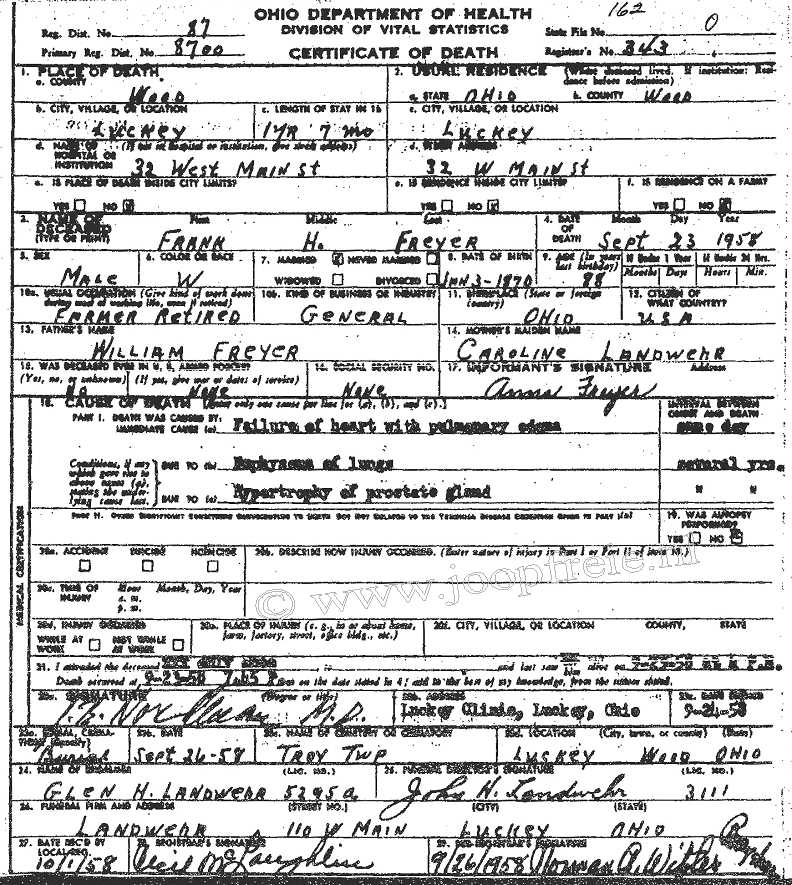 OHIO DEPARTMENT OF HEALTH
DIVISION OF VITAL STATISTICS
CERTIFICATE OF DEATH
Reg. Dist. No. 87
Primary Reg. Dist. No. 8700
162
State File No. O
Registrar's No. 343
1. PLACE OF DEATH
a. COUNTY Wood
2. USUAL RESIDENCE (Where deceased lived. If institution: Residence before admission)
a. STATE OHIO b. COUNTY Wood
b. CITY, VILLAGE, OR LOCATION LUCKEY
c. LENGTH OF STAY IN 1b 1 YR 7 mo
c. CITY, VILLAGE, OR LOCATION LUCKEY
d. NAME OF HOSPITAL OR INSTITUTION (If not in hospital or institution, give street address) 32 West Main St
d. STREET ADDRESS 32 W Main St
e. IS PLACE OF DEATH INSIDE CITY LIMITS? YES NO
e. IS RESIDENCE INSIDE CITY LIMITS? YES NO
f. IS RESIDENCE ON A FARM? YES NO
3. NAME OF DECEASED (TYPE OR PRINT) First Middle Last
FRANK H. FREYER
4. DATE OF DEATH Month Day Year
Sept 23 1958
5. SEX Male
6. COLOR OR RACE W
7. MARRIED NEVER MARRIED WIDOWED DIVORCED
8. DATE OF BIRTH JAN 3-1870
9. AGE (In years last birthday) 88
If Under 1 Year Months Days
If Under 24 Hrs. Hours Min.
10a. USUAL OCCUPATION (Give kind of work done during most of working life, even if retired) FARMER RETIRED
10b. KIND OF BUSINESS OR INDUSTRY GENERAL
11. BIRTHPLACE (State or foreign country) OHIO
12. CITIZEN OF WHAT COUNTRY? USA
13. FATHER'S NAME WILLIAM FREYER
14. MOTHER'S MAIDEN NAME CAROLINE LANDWEHR
15. WAS DECEASED EVER IN U. S. ARMED FORCES? (Yes, no, or unknown) (If yes, give war or dates of service)
No None
16. SOCIAL SECURITY NO. None
17. INFORMANT'S SIGNATURE Address
Anna Freyer
MEDICAL CERTIFICATION
18. CAUSE OF DEATH [Enter only one cause per line for (a), (b), and (c).]
INTERVAL BETWEEN ONSET AND DEATH
PART I. DEATH WAS CAUSED BY:
IMMEDIATE CAUSE (a) Failure of heart with pulmonary edema same day
Conditions, if any which gave rise to above cause (a), stating the underlying cause last.
DUE TO (b) Emphysema of lungs several yrs.
DUE TO (c) Hypertrophy of prostate gland " "
PART II. OTHER SIGNIFICANT CONDITIONS CONTRIBUTING TO DEATH BUT NOT RELATED TO THE TERMINAL DISEASE CONDITION GIVEN IN PART I(a)
19. WAS AUTOPSY PERFORMED? YES NO
20a. ACCIDENT SUICIDE HOMICIDE
20b. DESCRIBE HOW INJURY OCCURRED. (Enter nature of injury in Part I or Part II of item 18.)
20c. TIME OF INJURY Hour a. m. p. m. Month, Day, Year
© www.jooptreie.nl
20d. INJURY OCCURRED WHILE AT WORK NOT WHILE AT WORK
20e. PLACE OF INJURY (e. g., in or about home, farm, factory, street, office bldg., etc.)
20f. CITY, VILLAGE, OR LOCATION COUNTY, STATE
21. I attended the deceased and last saw him alive on
Death occurred at 9-23-58 on the date stated in 4; and to the best of my knowledge, from the causes stated.
22a. SIGNATURE (Degree or title) M.D.
22b. ADDRESS Luckey Clinic, Luckey, Ohio
22c. DATE SIGNED 9-24-58
23a. BURIAL, CREMATION (Specify) Burial
23b. DATE Sept 26-58
23c. NAME OF CEMETERY OR CREMATORY TROY TWP
23d. LOCATION (City, town, or county) (State) LUCKEY WOOD OHIO
24. NAME OF EMBALMER (LIC. NO.) GLEN H. LANDWEHR 5295a
25. FUNERAL DIRECTOR'S SIGNATURE (LIC. NO.) John H. Landwehr 3111
26. FUNERAL FIRM AND ADDRESS (STREET NO.) (CITY) (STATE)
LANDWEHR 110 W MAIN LUCKEY OHIO
27. DATE REC'D BY LOCAL REG. 10/1/58
28. REGISTRAR'S SIGNATURE Cecil McLaughlin
29. 9/26/1958 Norman